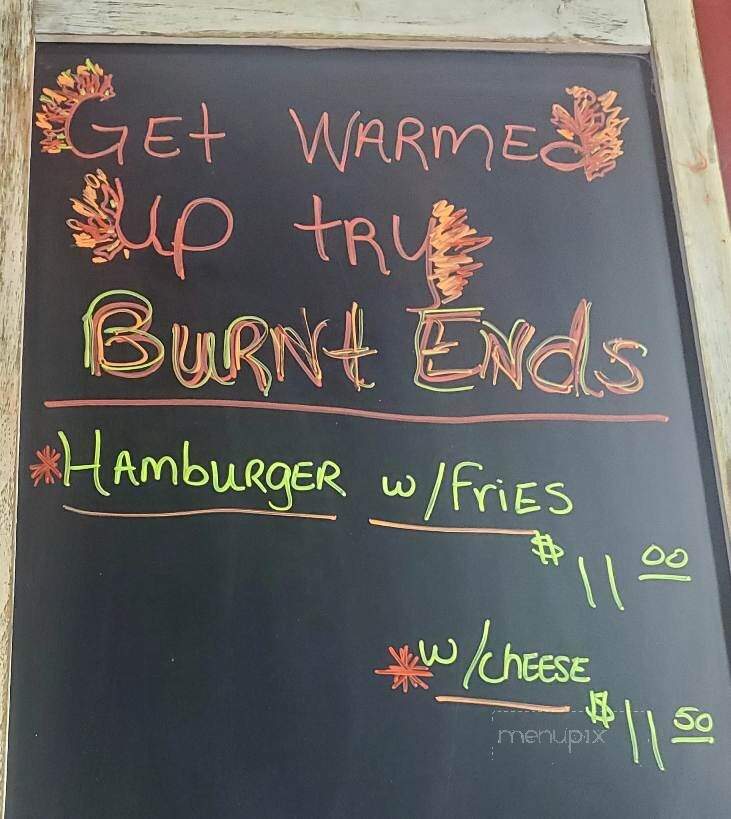 GEt WARMED
UP tRY
BURNt ENds
*HAmbURgER w/FriES
$11 00
*w/chEESE
$11 50
menupix